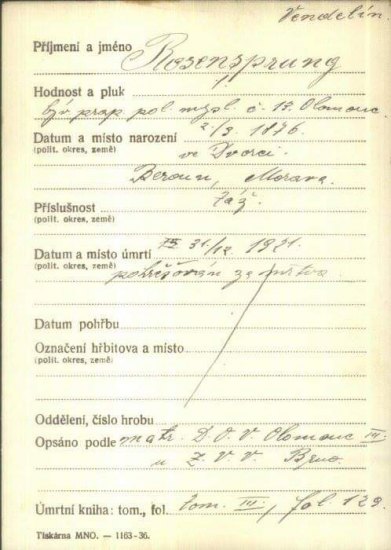 Vendelín
Příjmení a jméno Rosensprung
Hodnost a pluk
býv. prap. pol. mysl. č. 17. Olomouc.
Datum a místo narození 2/3. 1876.
(polit. okres, země) ve Dvorci.
Beroun, Morava.
Příslušnost táž.
(polit. okres, země)
Datum a místo úmrtí 31/12. 1921.
(polit. okres, země) pohřešován za mrtva.
Datum pohřbu
Označení hřbitova a místo
(polit. okres, země)
Oddělení, číslo hrobu
Opsáno podle matr. D. O. V. Olomouc III.
u Z. V. V. Brno.
Úmrtní kniha: tom., fol. tom. III, fol 129.
Tiskárna MNO. — 1163-36.